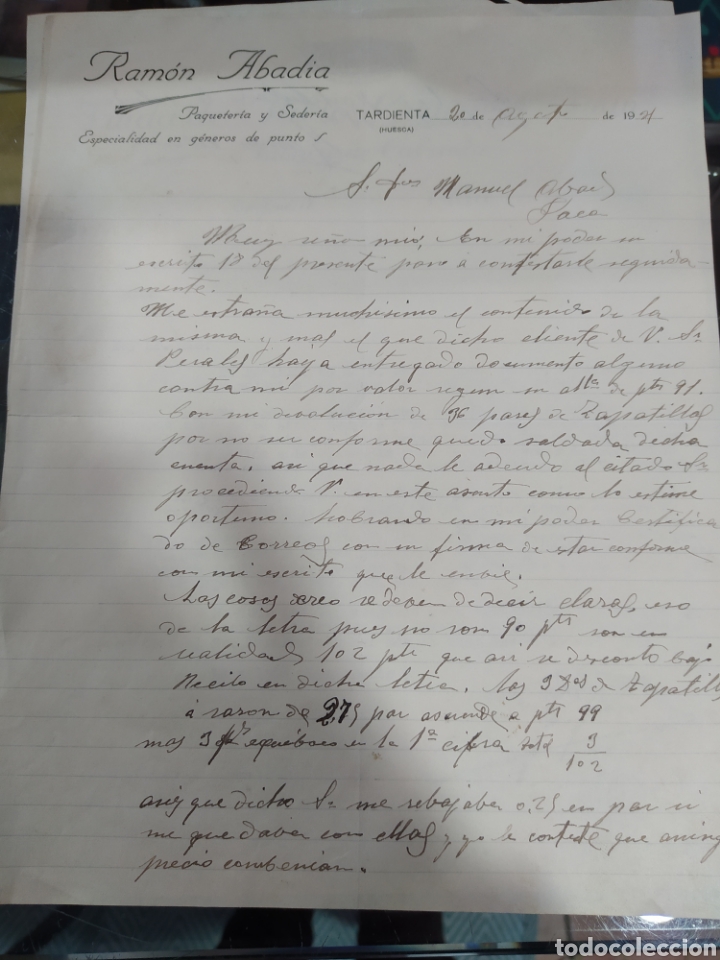 Ramón Abadia
Paquetería y Sedería
Especialidad en géneros de punto
TARDIENTA 20 de Agosto de 19
(HUESCA)
Manuel Abad
Jaca
Muy señor mio, En mi poder su
escrito 18 del presente paso á contestarle seguida-
mente.
Me estraña muchisimo el contenido de la
misma y mas el que dicho cliente de V. Sr
Perales haya entregado documento alguno
contra mi por valor segun su de pts 91.
Con mi devolución de 36 pares de Zapatillas
por no ser conforme quedo saldada dicha
cuenta, asi que nada le adeudo al citado Sr
procediendo V. en este asunto como lo estime
oportuno. hobrando en mi poder Certifica
do de Correos con su firma de estar conforme
con mi escrito que le envie.
Las cosas creo se deben de decir claras, eso
de la letra pues no son 90 pts son en
realidad 102 pts que asi se desconto bajo
Recibo en dicha letra. las 3 Dcs de Zapatill
á razon de 2.75 par asciende a pts 99
mas 3 equiboco en la 1ª cifra total 3
102
asies que dicho Sr me rebajaba 0.25 en par si
me quedaba con ellas y yo le conteste que aning
precio combenian.
todocoleccion